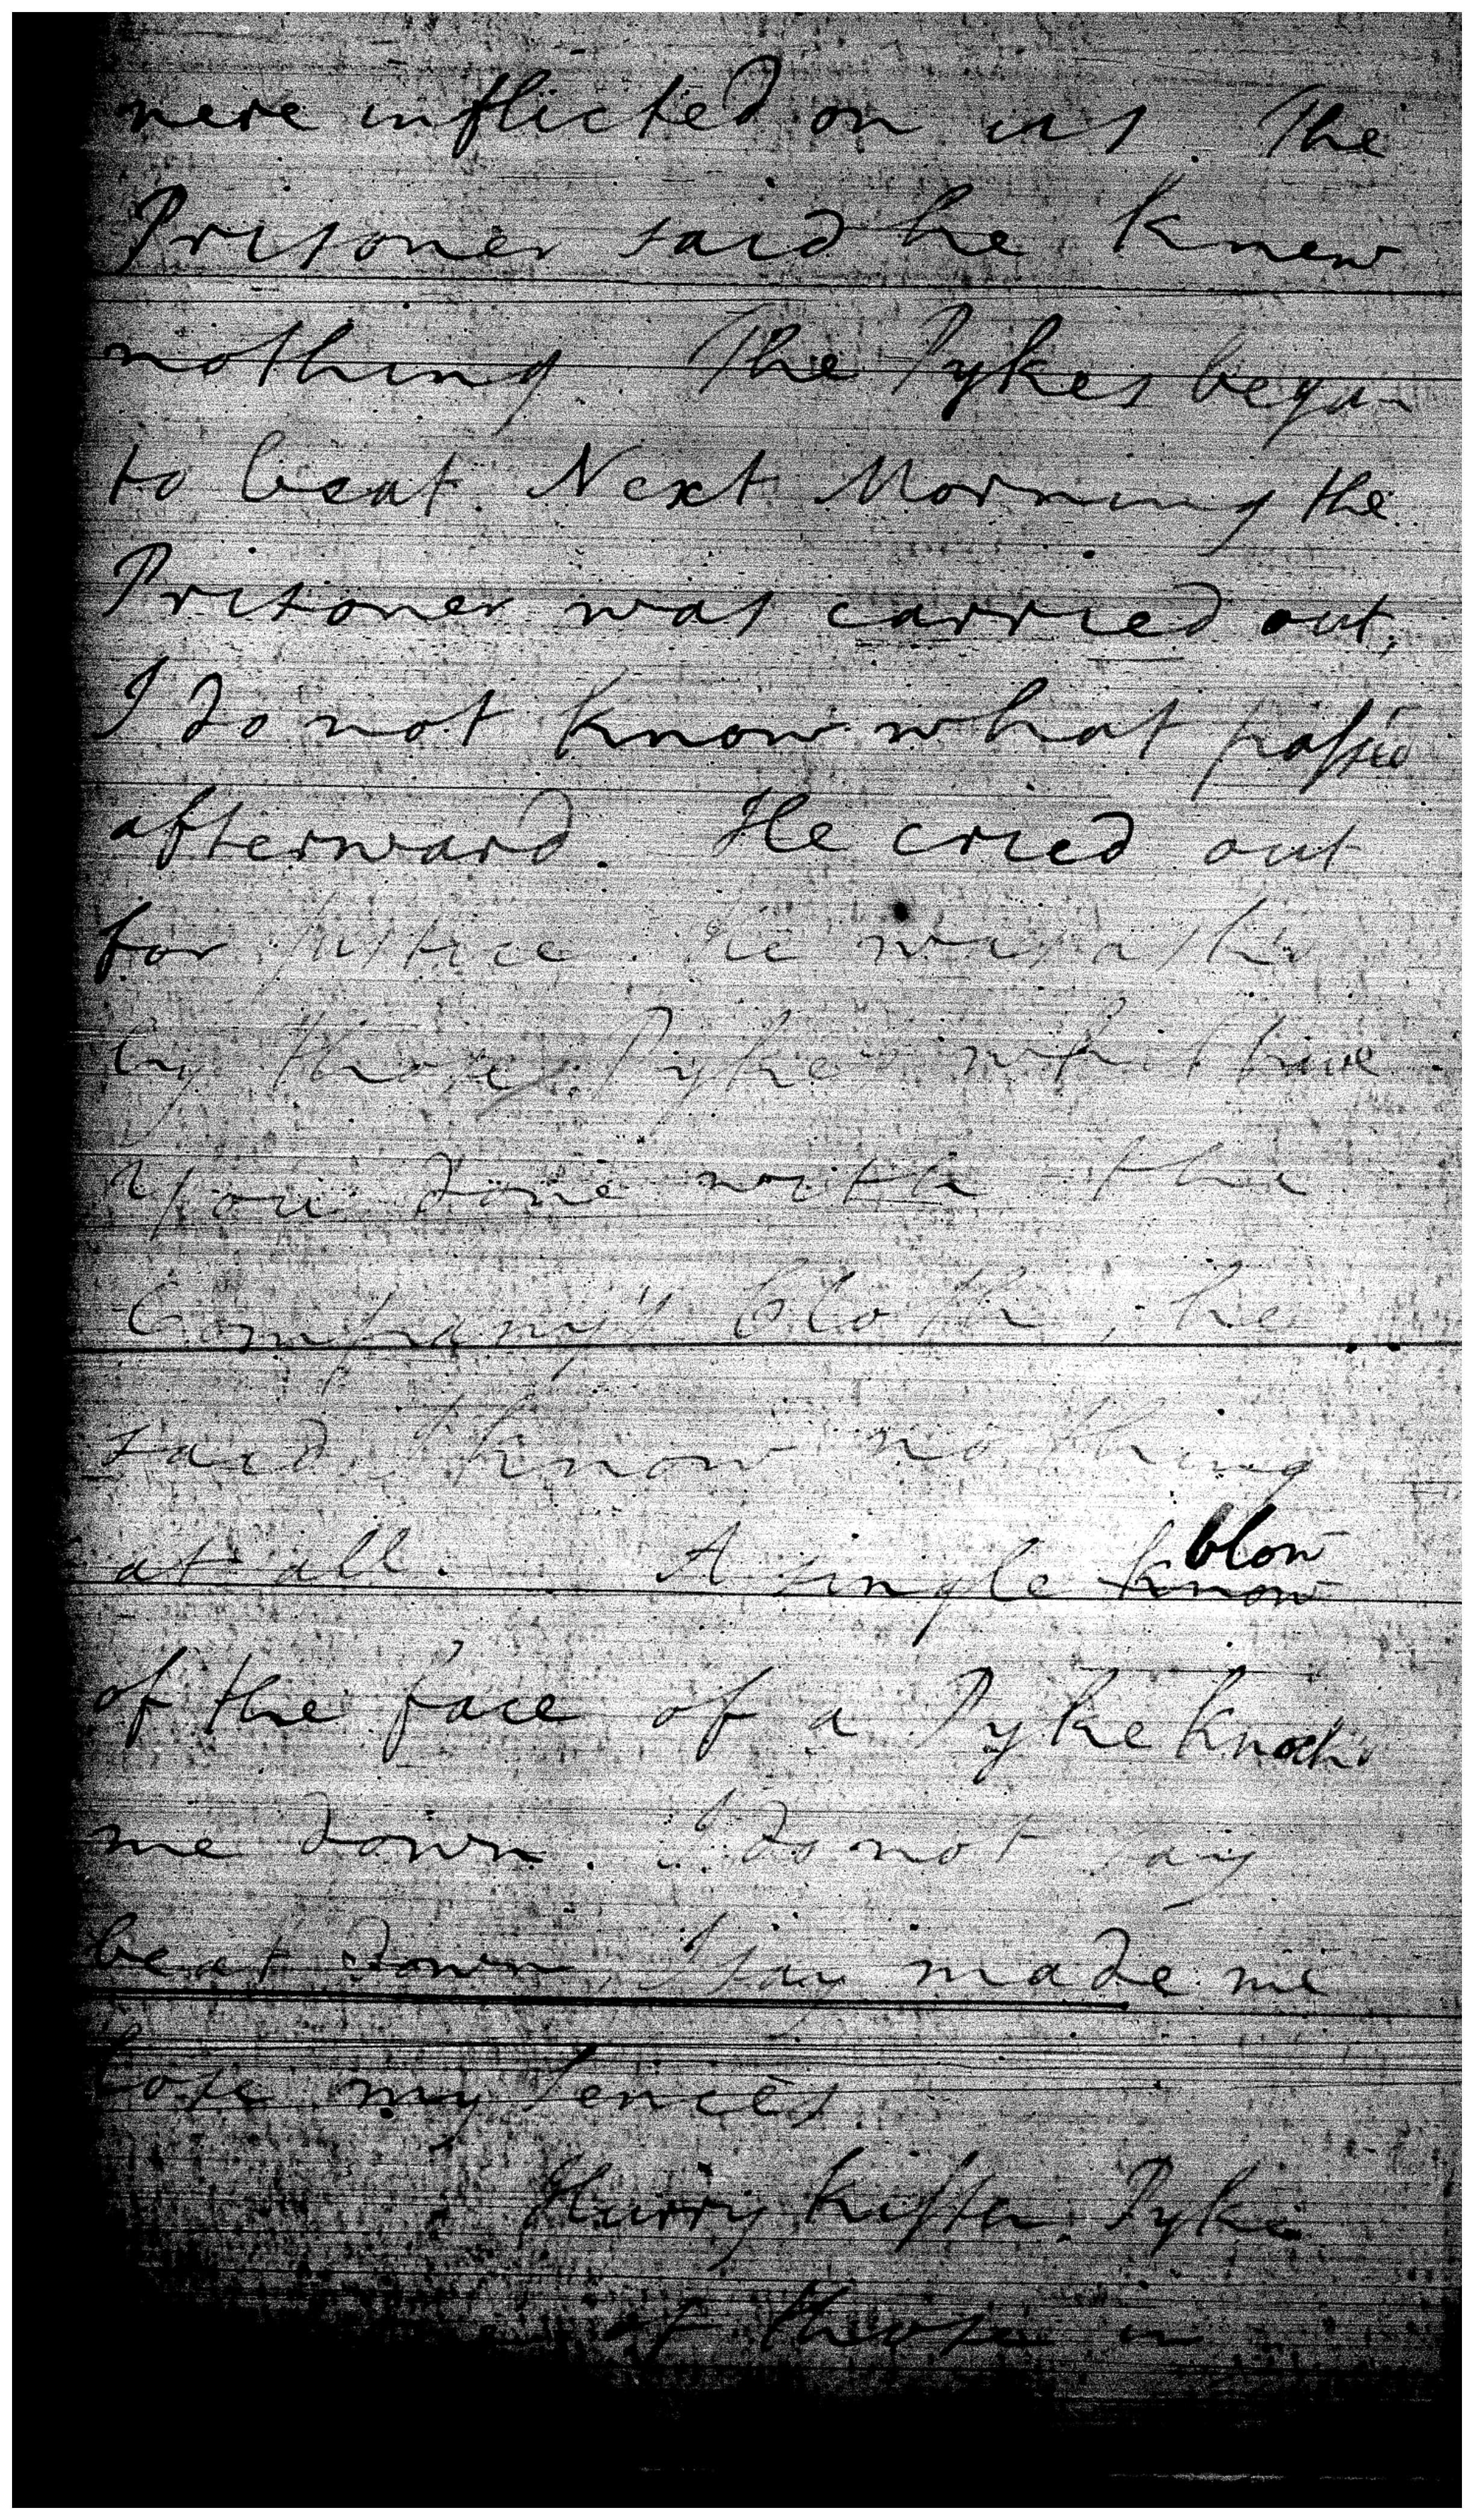 were inflicted on us. The
Prisoner said he knew
nothing. The Pykes began
to beat. Next Morning the
Prisoner was carried out,
I do not know what passed
afterward. He cried out
for Justice. he was askd
by those Pykes what have
you done with the
Company's Cloth, he
said, I know nothing
at all. A single know blow
of the face of a Pyke knockd
me down. I do not say
beat down, I say made me
lose my sences.
Hurry Kissen. Pyke
of those in